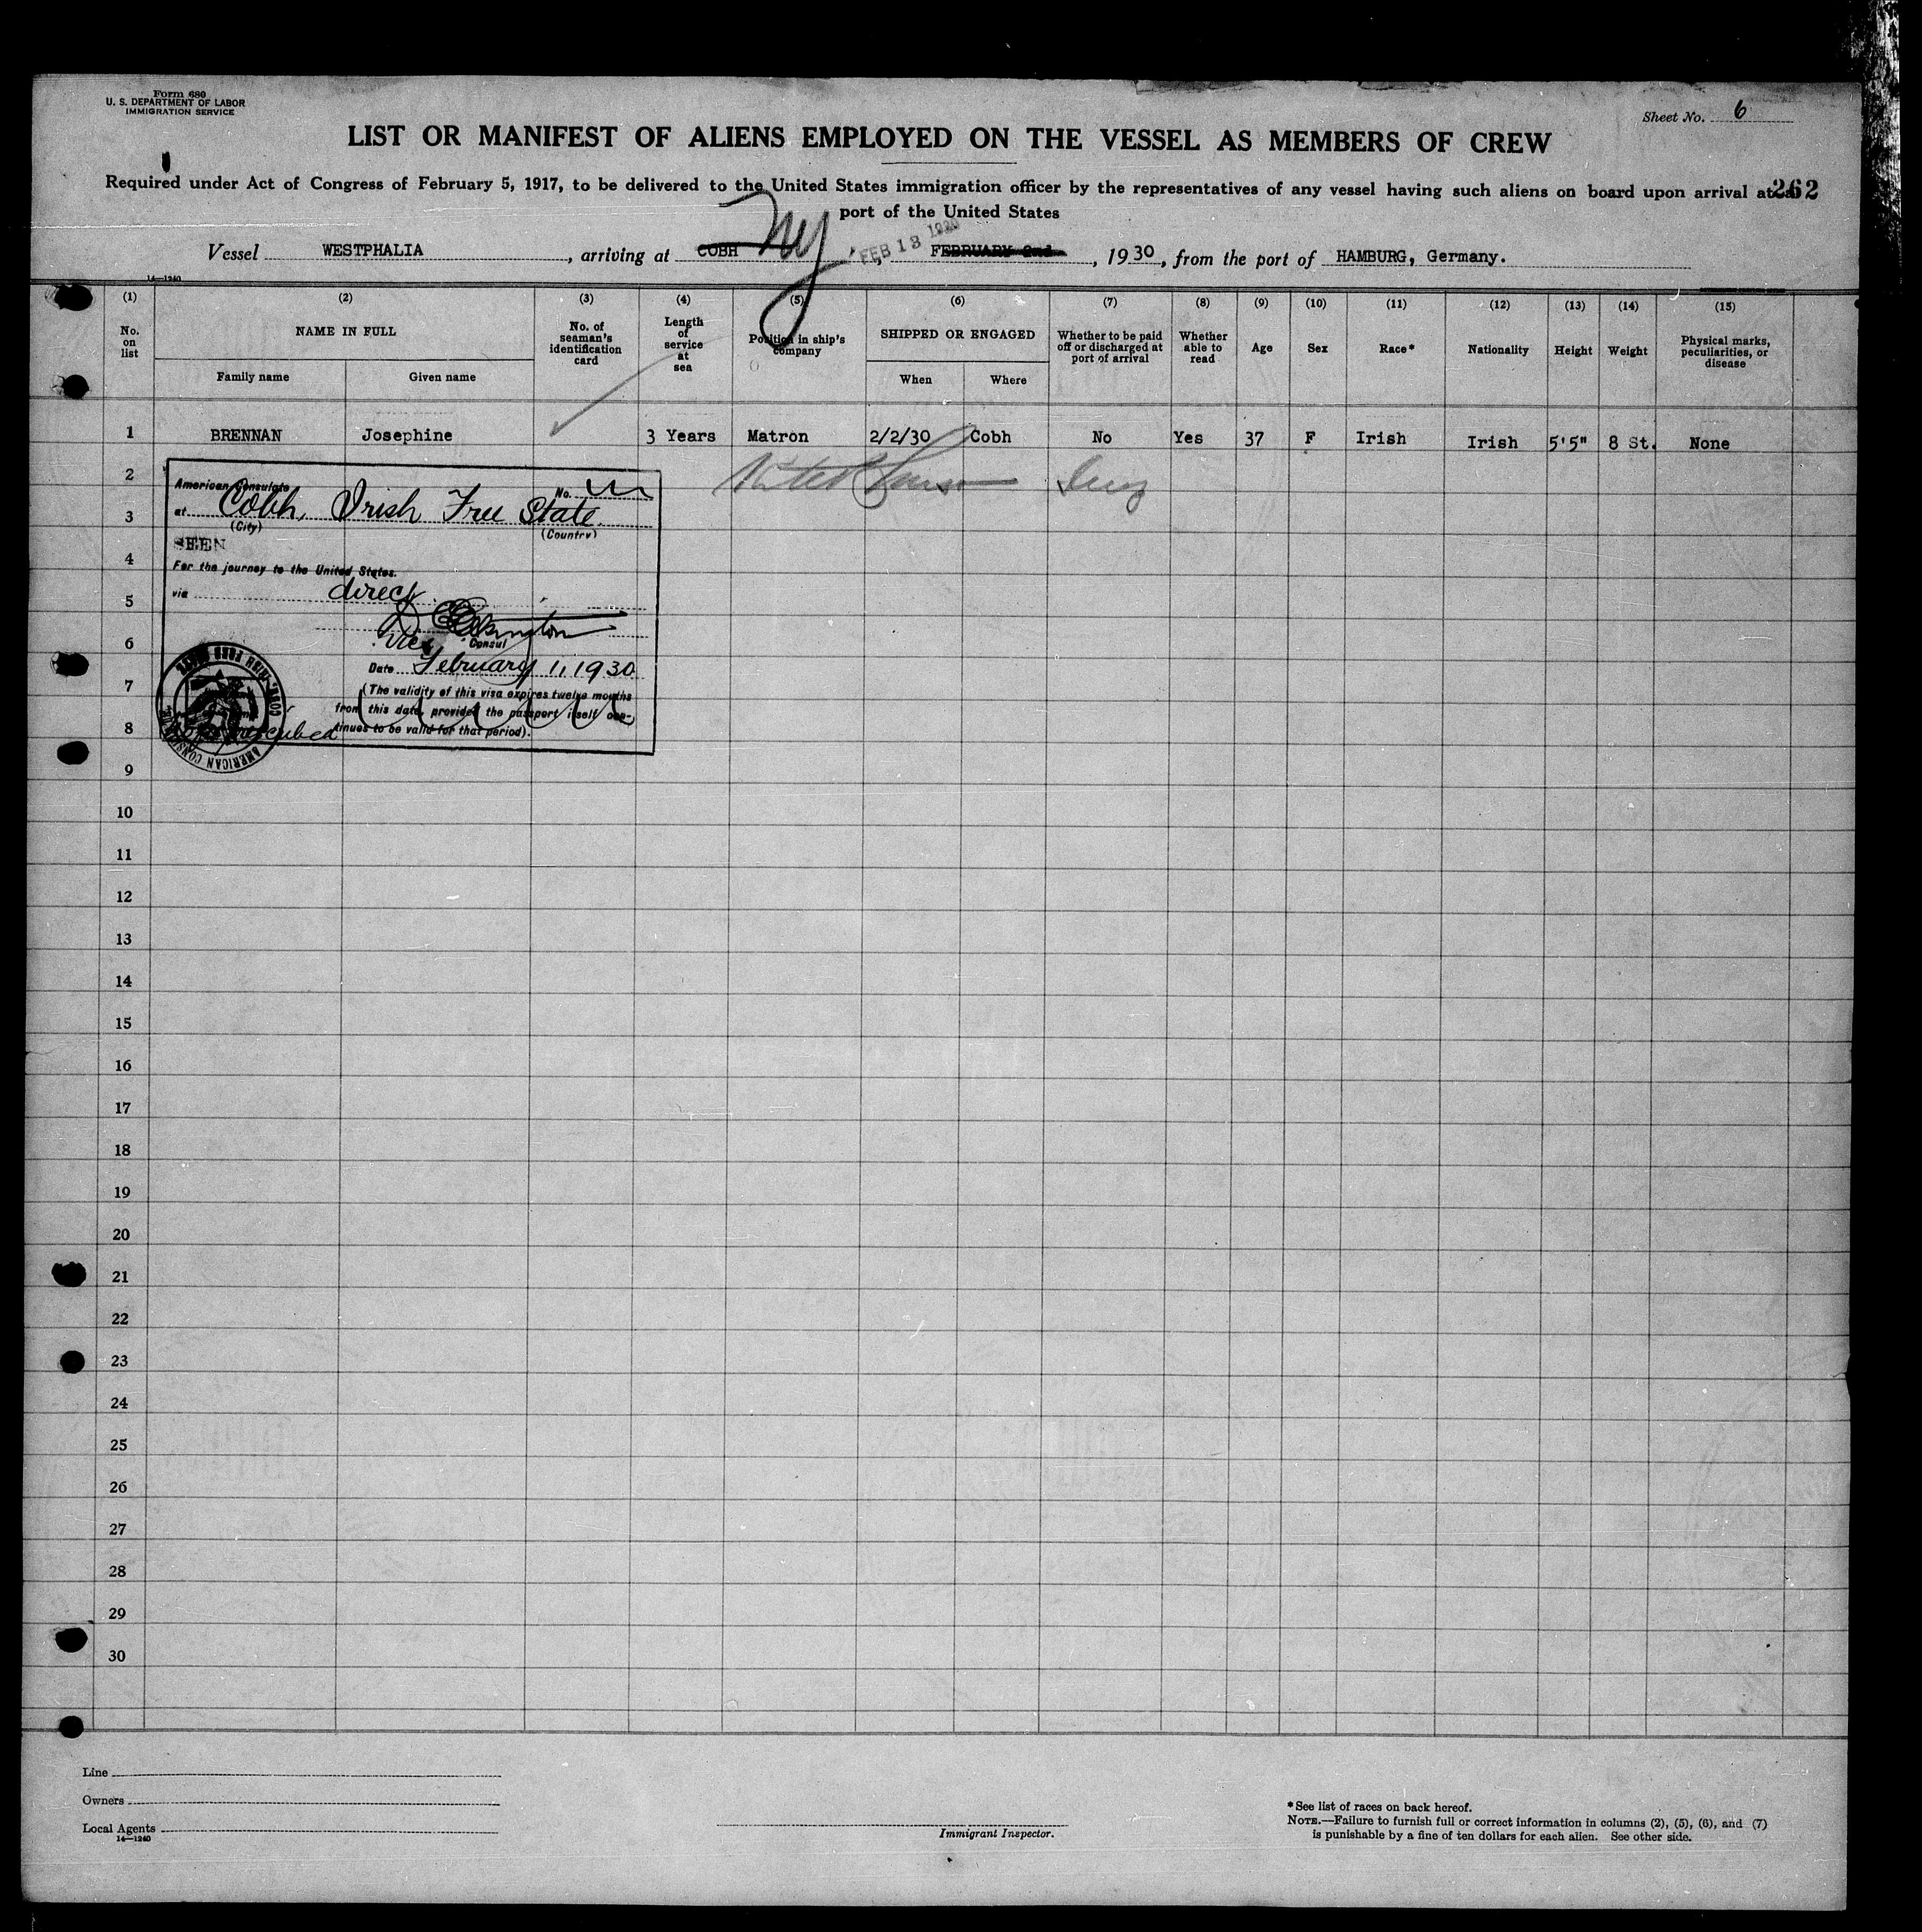 Form 680
U. S. DEPARTMENT OF LABOR
IMMIGRATION SERVICE
Sheet No. 6
LIST OR MANIFEST OF ALIENS EMPLOYED ON THE VESSEL AS MEMBERS OF CREW
Required under Act of Congress of February 5, 1917, to be delivered to the United States immigration officer by the representatives of any vessel having such aliens on board upon arrival at a
262
port of the United States
Vessel WESTPHALIA, arriving at COBH NY, FEB 13 1930 FEBRUARY 2nd, 1930, from the port of HAMBURG, Germany.
14—1240
(1) (2) (3) (4) (5) (6) (7) (8) (9) (10) (11) (12) (13) (14) (15)
No. on list
NAME IN FULL
Family name
Given name
No. of seaman's identification card
Length of service at sea
Position in ship's company
SHIPPED OR ENGAGED
When
Where
Whether to be paid off or discharged at port of arrival
Whether able to read
Age
Sex
Race*
Nationality
Height
Weight
Physical marks, peculiarities, or disease
1 BRENNAN Josephine 3 Years Matron 2/2/30 Cobh No Yes 37 F Irish Irish 5'5" 8 St. None
2
3
4
5
6
7
8
American Consulate No.
at Cobh, Irish Free State.
(City) (Country)
SEEN
For the journey to the United States.
via direct
Vice Consul
Date February 1, 1930.
(The validity of this visa expires twelve months
from this date, provided the passport itself con-
tinues to be valid for that period).
AMERICAN CONSULATE COBH, IRISH FREE STATE
9
10
11
12
13
14
15
16
17
18
19
20
21
22
23
24
25
26
27
28
29
30
Line
Owners
Local Agents
14—1240
Immigrant Inspector.
*See list of races on back hereof.
NOTE.—Failure to furnish full or correct information in columns (2), (5), (6), and (7)
is punishable by a fine of ten dollars for each alien. See other side.